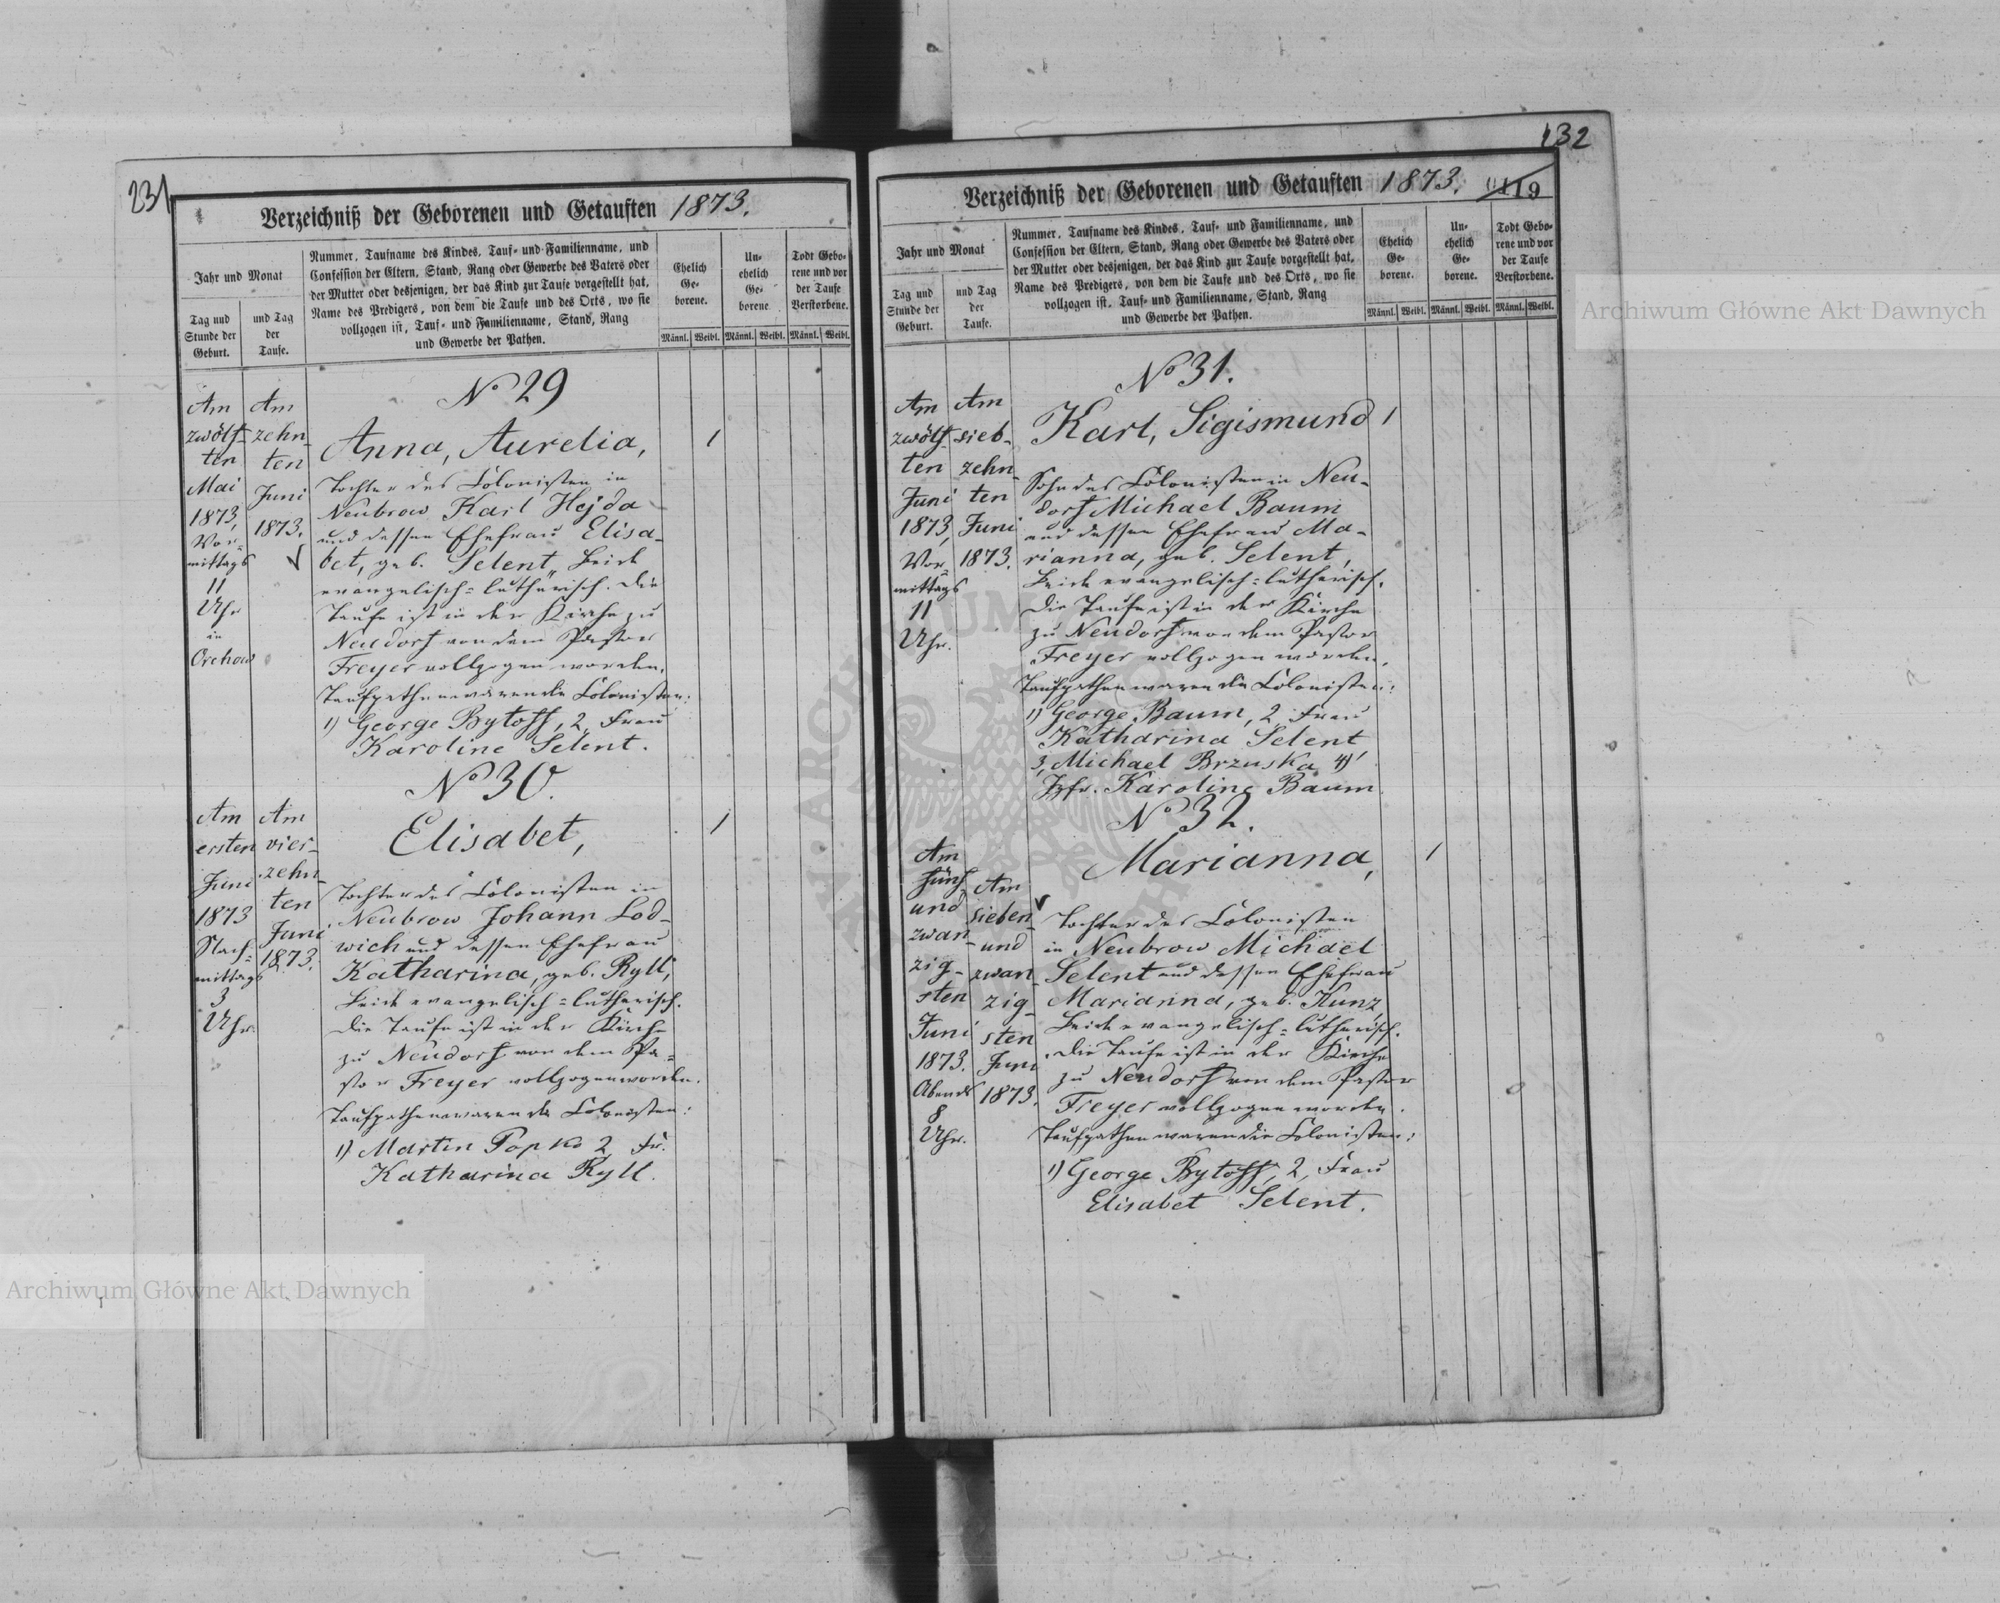 231
Verzeichniß der Geborenen und Getauften 1873.
Jahr und Monat
Tag und
Stunde der
Geburt.
und Tag
der
Taufe.
Nummer, Taufname des Kindes, Tauf- und Familienname, und
Confession der Eltern, Stand, Rang oder Gewerbe des Vaters oder
der Mutter oder desjenigen, der das Kind zur Taufe vorgestellt hat,
Name des Predigers, von dem die Taufe und des Orts, wo sie
vollzogen ist, Tauf- und Familienname, Stand, Rang
und Gewerbe der Pathen.
Ehelich
Ge-
borene.
Un-
ehelich
Ge-
borene
Todt Gebo-
rene und vor
der Taufe
Verstorbene.
Männl. Weibl. Männl. Weibl. Männl. Weibl.
Am
zwölf-
ten
Mai
1873,
Vor-
mittags
11
Uhr
in
Orchow
Am
zehn-
ten
Juni
1873.
No 29
Anna, Aurelia,
1
Tochter des Colonisten in
Neubrow Karl Hejda
und dessen Ehefrau Elisa-
bet, geb. Selent, Beide
evangelisch-lutherisch. Die
Taufe ist in der Kirche zu
Neudorf von dem Pastor
Freyer vollzogen worden.
Taufpathen waren die Colonisten:
1) George Bytoff, 2, Frau
Karoline Selent.
Am
ersten
Juni
1873
Nach-
mittags
3
Uhr.
Am
vier-
zehn-
ten
Juni
1873.
No 30.
Elisabet,
1
Tochter des Colonisten in
Neubrow Johann Lod-
wich und dessen Ehefrau
Katharina, geb. Ryll,
Beide evangelisch-lutherisch.
Die Taufe ist in der Kirche
zu Neudorf von dem Pa-
stor Freyer vollzogen worden.
Taufpathen waren die Colonisten:
1) Martin Popko 2, Fr.
Katharina Ryll.
232
Verzeichniß der Geborenen und Getauften 1873.
119
Jahr und Monat
Tag und
Stunde der
Geburt.
und Tag
der
Taufe.
Nummer, Taufname des Kindes, Tauf- und Familienname, und
Confession der Eltern, Stand, Rang oder Gewerbe des Vaters oder
der Mutter oder desjenigen, der das Kind zur Taufe vorgestellt hat,
Name des Predigers, von dem die Taufe und des Orts, wo sie
vollzogen ist, Tauf- und Familienname, Stand, Rang
und Gewerbe der Pathen.
Ehelich
Ge-
borene.
Un-
ehelich
Ge-
borene.
Todt Gebo-
rene und vor
der Taufe
Verstorbene.
Männl. Weibl. Männl. Weibl. Männl. Weibl.
Am
zwölf-
ten
Juni
1873,
Vor-
mittags
11
Uhr.
Am
sieb-
zehn-
ten
Juni
1873.
No 31.
Karl, Sigismund
1
Sohn des Colonisten in Neu-
dorf Michael Baum
und dessen Ehefrau Ma-
rianna, geb. Selent,
Beide evangelisch-lutherisch.
Die Taufe ist in der Kirche
zu Neudorf von dem Pastor
Freyer vollzogen worden.
Taufpathen waren die Colonisten:
1) George Baum, 2, Frau
Katharina Selent
3, Michael Brzuska 4)
Jgfr. Karoline Baum
Am
fünf
und
zwan-
zig-
sten
Juni
1873.
Abends
8
Uhr.
Am
sieben
und
zwan
zig-
sten
Juni
1873.
No 32.
Marianna,
1
Tochter des Colonisten
in Neubrow Michael
Selent und dessen Ehefrau
Marianna, geb. Kunz,
Beide evangelisch-lutherisch.
Die Taufe ist in der Kirche
zu Neudorf von dem Pastor
Freyer vollzogen worden.
Taufpathen waren die Colonisten:
1) George Bytoff, 2, Frau
Elisabet Selent.
Archiwum Główne Akt Dawnych
Archiwum Główne Akt Dawnych